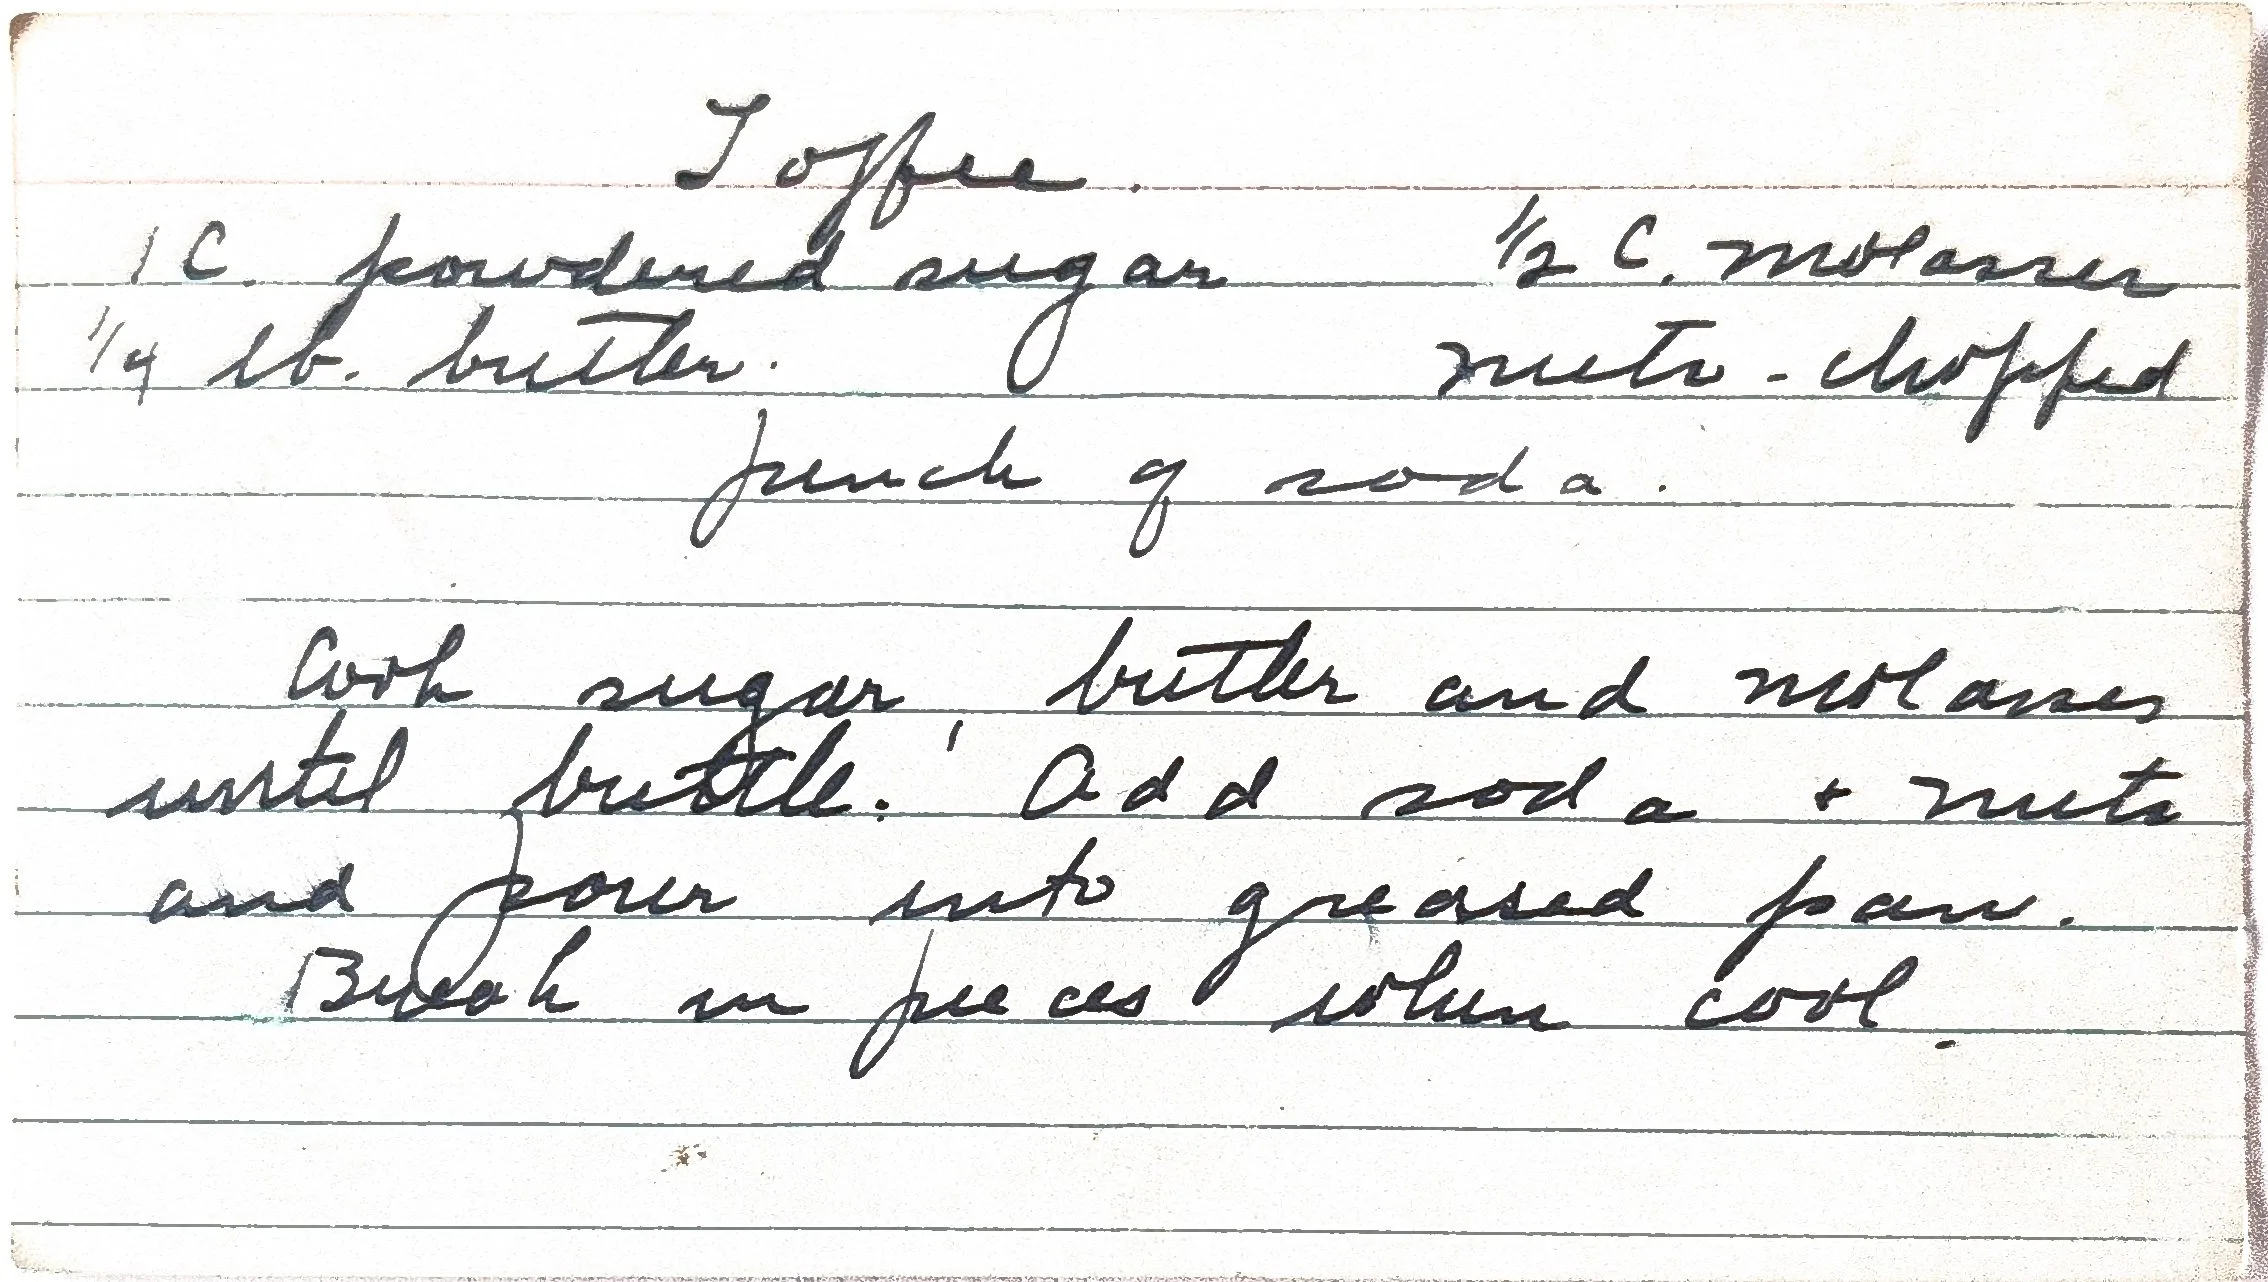 Toffee.
1 C. powdered sugar 1/2 C. molasses
1/4 lb. butter. nuts - chopped
pinch of soda.
Cook sugar, butter and molasses
until brittle. Add soda + nuts
and pour into greased pan.
Break in pieces when cool.